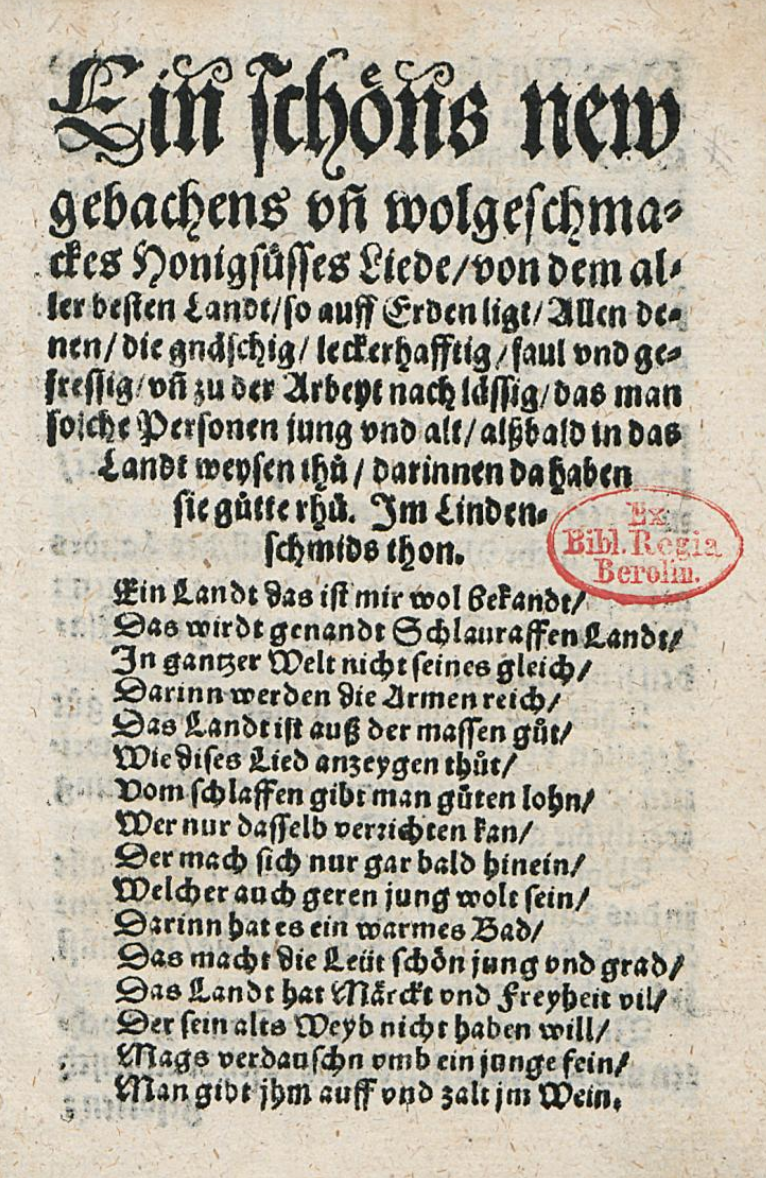 Ein schöns new
gebachens vñ wolgeschma⸗
ckes Honigsüsses Liede/von dem al⸗
ler besten Landt/so auff Erden ligt/Allen de⸗
nen/die gnäschig/leckerhafftig/faul vnd ge⸗
fressig/vñ zu der Arbeyt nach lässig/das man
solche Personen jung vnd alt/alßbald in das
Landt weysen thů/darinnen da haben
sie gůtte rhů. Im Linden⸗
schmids thon.
Ex
Bibl. Regia
Berolin.
Ein Landt das ist mir wol bekandt/
Das wirdt genandt Schlauraffen Landt/
In gantzer Welt nicht seines gleich/
Darinn werden die Armen reich/
Das Landt ist auß der massen gůt/
Wie dises Lied anzeygen thůt/
Vom schlaffen gibt man gůten lohn/
Wer nur dasselb verrichten kan/
Der mach sich nur gar bald hinein/
Welcher auch geren jung wolt sein/
Darinn hat es ein warmes Bad/
Das macht die Leüt schön jung vnd grad/
Das Landt hat Märckt vnd Freyheit vil/
Der sein alts Weyb nicht haben will/
Mags verdauschn vmb ein junge fein/
Man gibt jhm auff vnd zalt jm Wein.